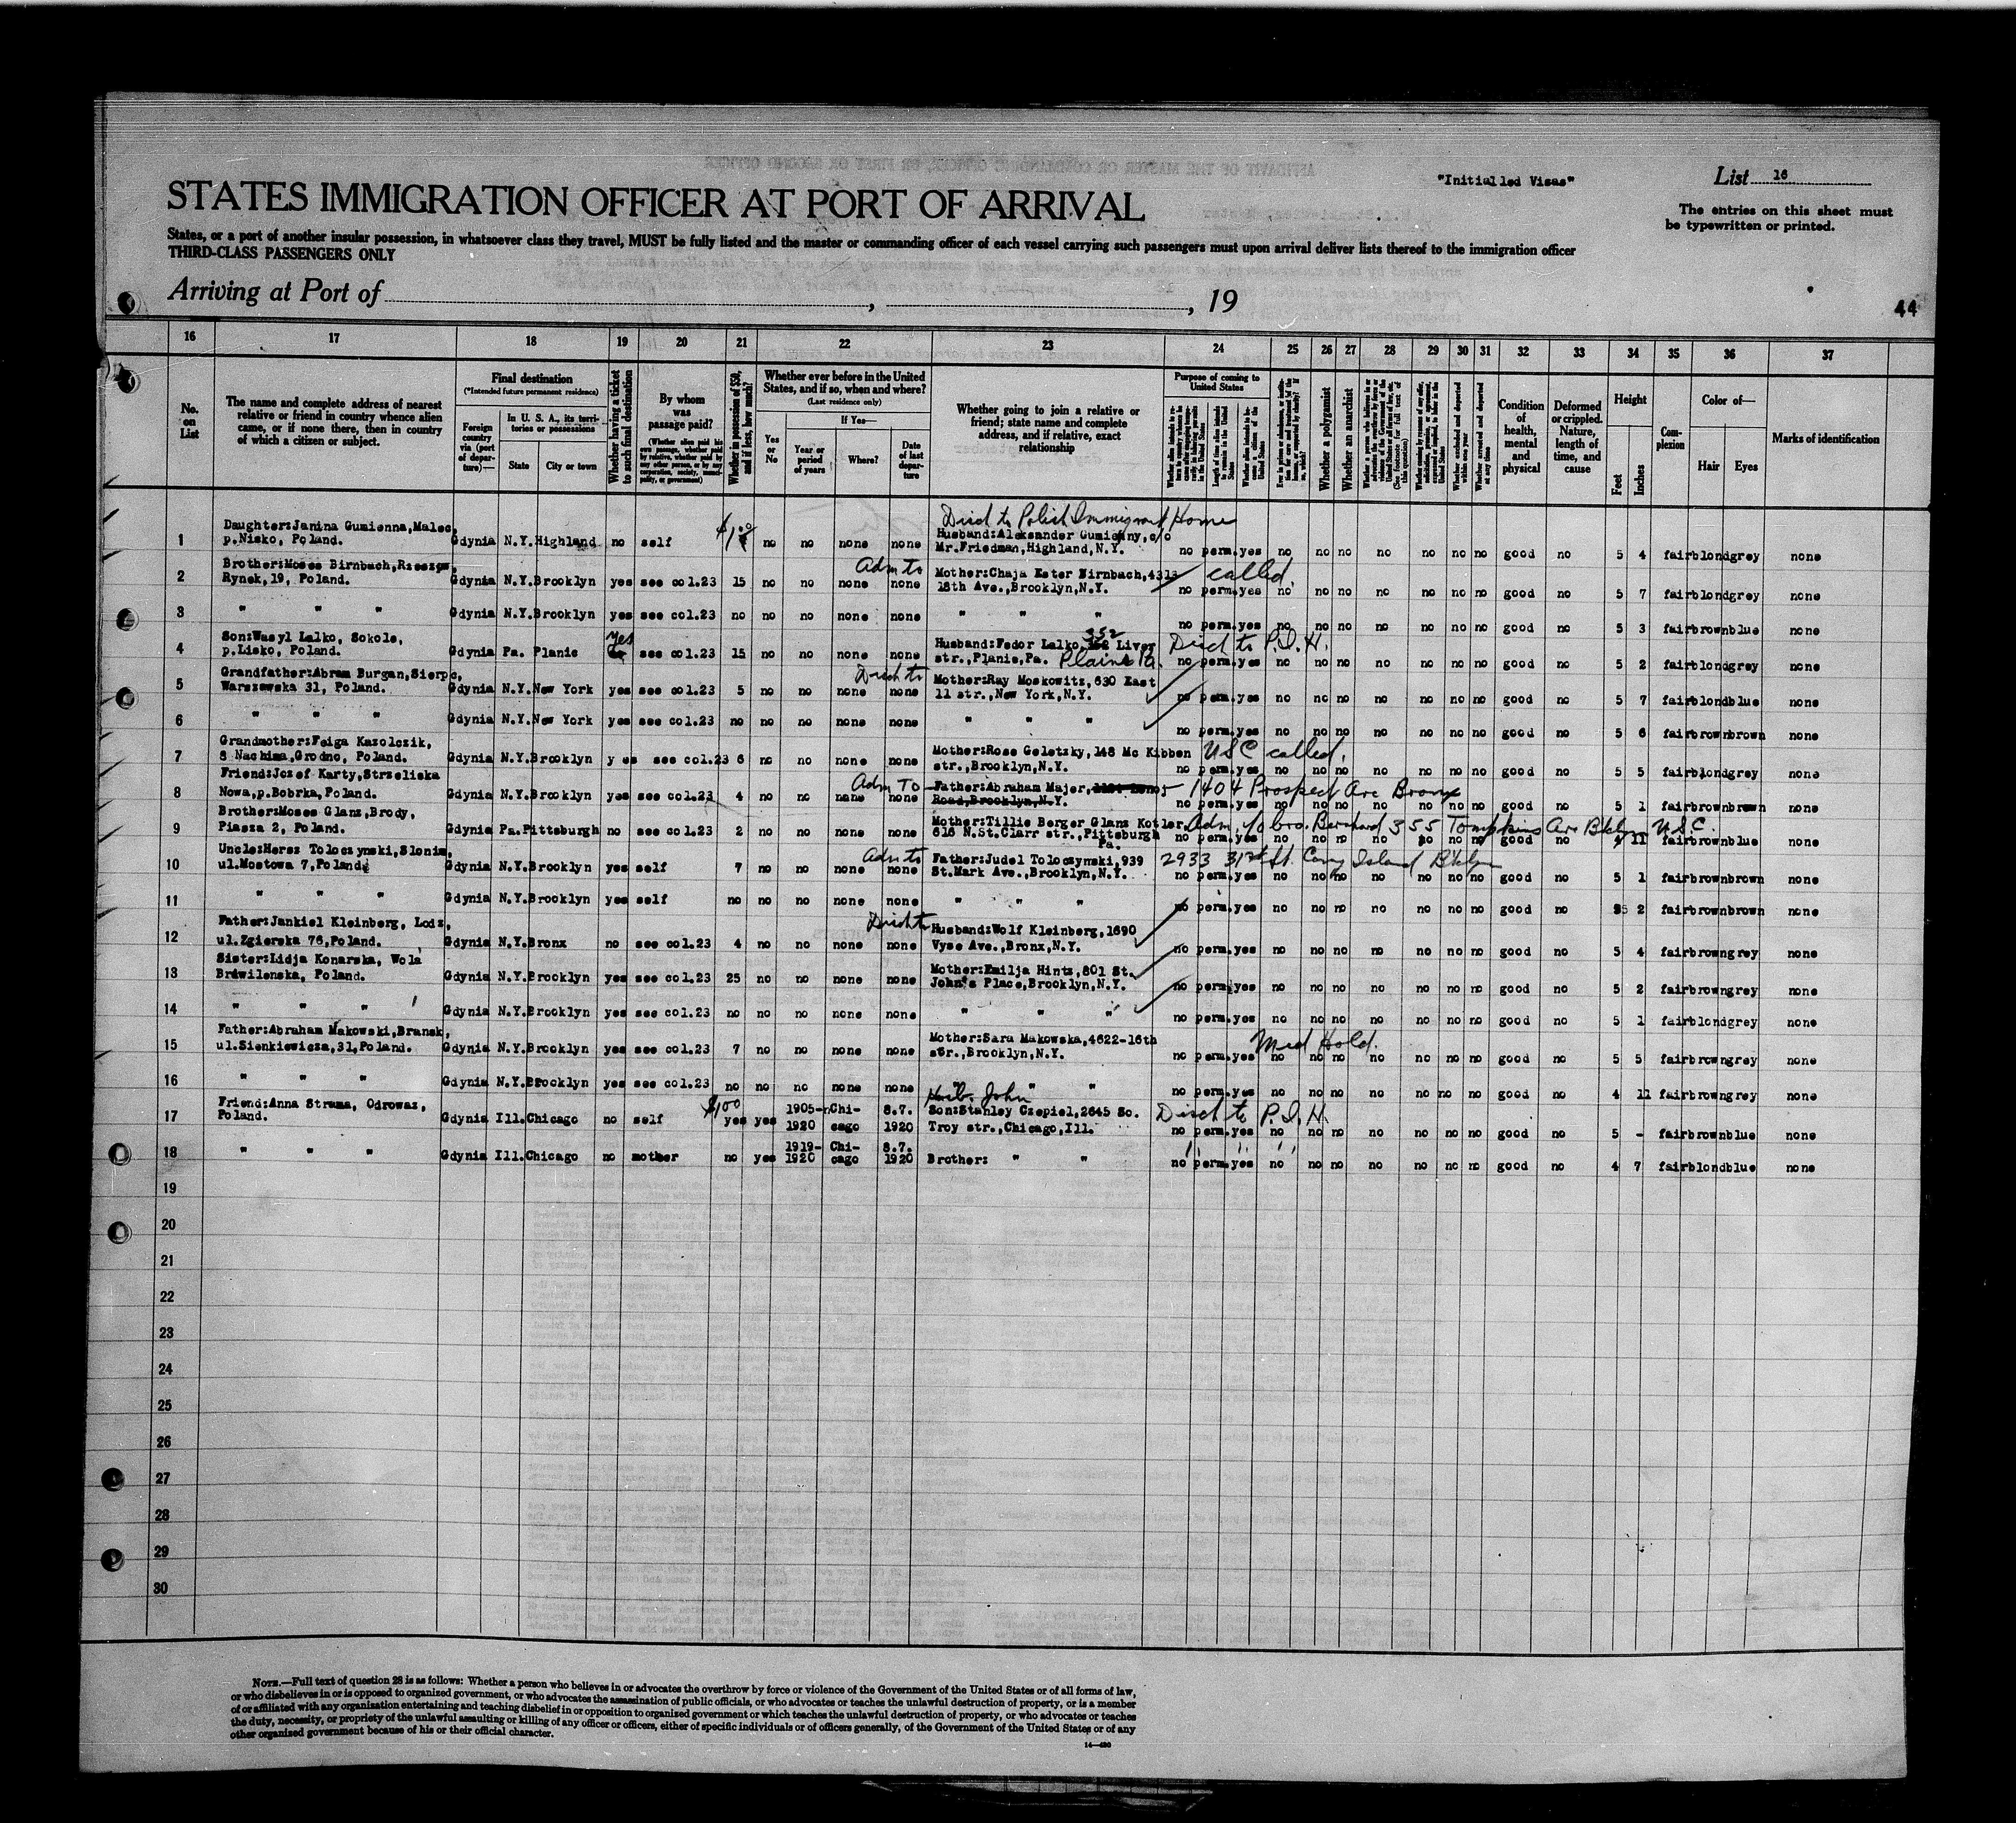 "Initialled Visas"
List 16
STATES IMMIGRATION OFFICER AT PORT OF ARRIVAL
The entries on this sheet must
be typewritten or printed.
States, or a port of another insular possession, in whatsoever class they travel, MUST be fully listed and the master or commanding officer of each vessel carrying such passengers must upon arrival deliver lists thereof to the immigration officer
THIRD-CLASS PASSENGERS ONLY
Arriving at Port of , , 19
44
16 17 18 19 20 21 22 23 24 25 26 27 28 29 30 31 32 33 34 35 36 37
No. on List
The name and complete address of nearest relative or friend in country whence alien came, or if none there, then in country of which a citizen or subject.
Final destination
(*Intended future permanent residence)
Foreign country via (port of departure)—
In U. S. A., its territories or possessions
State City or town
Whether having a ticket to such final destination
By whom was passage paid?
(Whether alien paid his own passage, whether paid by relative, whether paid by any other person, or by any corporation, society, municipality, or government)
Whether in possession of $50, and if less, how much?
Whether ever before in the United States, and if so, when and where?
(Last residence only)
Yes or No
If Yes—
Year or period of years Where? Date of last departure
Whether going to join a relative or friend; state name and complete address, and if relative, exact relationship
Purpose of coming to United States
Whether a polygamist
Whether an anarchist
Condition of health, mental and physical
Deformed or crippled. Nature, length of time, and cause
Height
Feet Inches
Complexion
Color of—
Hair Eyes
Marks of identification
Disch to Polish Immigrant Home
1 Daughter:Janina Gumienna,Malec, p.Nisko, Poland. Gdynia N.Y. Highland no self $1 00 no no none none Husband:Aleksander Gumienny, c/o Mr.Friedman,Highland,N.Y. no perm.yes no no no no no no no good no 5 4 fair blond grey none
2 Brother:Moses Birnbach,Rzeszow, Rynek,19, Poland. Gdynia N.Y. Brooklyn yes see col.23 15 no no none none Adm to Mother:Chaja Ester Birnbach,4313 18th Ave.,Brooklyn,N.Y. called. no perm.yes no no no no no no no good no 5 7 fair blond grey none
3 " " " Gdynia N.Y. Brooklyn yes see col.23 no no no none none " " " no perm.yes no no no no no no no good no 5 3 fair brown blue none
4 Son:Wasyl Lalko, Sokole, p.Lisko, Poland. Gdynia Pa. Planie yes see col.23 15 no no none none Husband:Fedor Lalko, 352 Liver str.,Planie,Pa. Plains Pa. Disch to P.I.H. no perm.yes no no no no no no no good no 5 2 fair blond grey none
5 Grandfather:Abram Burgan,Sierpc, Warszawska 31, Poland. Gdynia N.Y. New York yes see col.23 5 no no none none Disch to Mother:Ray Moskowitz,630 East 11 str.,New York,N.Y. no perm.yes no no no no no no no good no 5 7 fair blond blue none
6 " " " Gdynia N.Y. New York yes see col.23 no no no none none " " " no perm.yes no no no no no no no good no 5 6 fair brown brown none
7 Grandmother:Feiga Kazolczik, 8 Nachima,Grodno, Poland. Gdynia N.Y. Brooklyn yes see col.23 6 no no none none Mother:Rose Geletzky,148 Mc Kibben str.,Brooklyn,N.Y. USC called. no perm.yes no no no no no no no good no 5 5 fair blond grey none
8 Friend:Jozef Karty,Strzeliska Nowa,p.Bobrka,Poland. Gdynia N.Y. Brooklyn yes see col.23 4 no no none none Adm To Father:Abraham Majer, Road,Brooklyn,N.Y. 1404 Prospect Ave Bronx no perm.yes no no no no no no no good no 5 1 fair blond brown none
9 Brother:Moses Glanz,Brody, Piasza 2, Poland. Gdynia Pa. Pittsburgh no see col.23 2 no no none none Mother:Tillie Berger Glanz Kotler, 616 N.St.Clarr str.,Pittsburgh Pa. Adm. to bro. Bernhard 355 Tompkins Ave Bklyn USC. no perm.yes no no no no no no no good no 4 11 fair brown blue none
10 Uncle:Hersz Toloczynski,Slonim, ul.Mostowa 7,Poland. Gdynia N.Y. Brooklyn yes self 7 no no none none Adm to Father:Judel Toloczynski,939 St.Mark Ave.,Brooklyn,N.Y. 2933 31st st. Coney Island Bklyn no perm.yes no no no no no no no good no 5 1 fair brown brown none
11 " " " Gdynia N.Y. Brooklyn yes self no no no none none " " " no perm.yes no no no no no no no good no 5 2 fair brown brown none
12 Father:Jankiel Kleinberg, Lodz, ul.Zgierska 76,Poland. Gdynia N.Y. Bronx no see col.23 4 no no none none Disch to Husband:Wolf Kleinberg,1690 Vyse Ave.,Bronx,N.Y. no perm.yes no no no no no no no good no 5 4 fair brown grey none
13 Sister:Lidja Konarska, Wola Brówilenska, Poland. Gdynia N.Y. Brooklyn yes see col.23 25 no no none none Mother:Emilja Hintz,801 St. John's Place,Brooklyn,N.Y. no perm.yes no no no no no no no good no 5 2 fair brown grey none
14 " " " Gdynia N.Y. Brooklyn yes see col.23 no no no none none " " " no perm.yes no no no no no no no good no 5 1 fair blond grey none
15 Father:Abraham Makowski,Bransk, ul.Sienkiewicza,31,Poland. Gdynia N.Y. Brooklyn yes see col.23 7 no no none none Mother:Sara Makowska,4622-16th str.,Brooklyn,N.Y. Med Hold. no perm.yes no no no no no no no good no 5 5 fair brown grey none
16 " " " Gdynia N.Y. Brooklyn yes see col.23 no no no none none " " " no perm.yes no no no no no no no good no 4 11 fair brown grey none
17 Friend:Anna Strama, Odrowaz, Poland. Gdynia Ill. Chicago no self $100 yes yes 1905-1920 Chicago 8.7. 1920 Husb. John Son:Stanley Czepiel,2645 So. Troy str.,Chicago,Ill. Disch to P.I.H. no perm.yes no no no no no no no good no 5 - fair brown blue none
18 " " " Gdynia Ill. Chicago no mother no yes 1919-1920 Chicago 8.7. 1920 Brother: " " no perm.yes no no no no no no no good no 4 7 fair blond blue none
19
20
21
22
23
24
25
26
27
28
29
30
NOTE.—Full text of question 28 is as follows: Whether a person who believes in or advocates the overthrow by force or violence of the Government of the United States or of all forms of law,
or who disbelieves in or is opposed to organized government, or who advocates the assassination of public officials, or who advocates or teaches the unlawful destruction of property, or is a member
of or affiliated with any organization entertaining and teaching disbelief in or opposition to organized government or which teaches the unlawful destruction of property, or who advocates or teaches
the duty, necessity, or propriety of the unlawful assaulting or killing of any officer or officers, either of specific individuals or of officers generally, of the Government of the United States or of any
other organized government because of his or their official character.